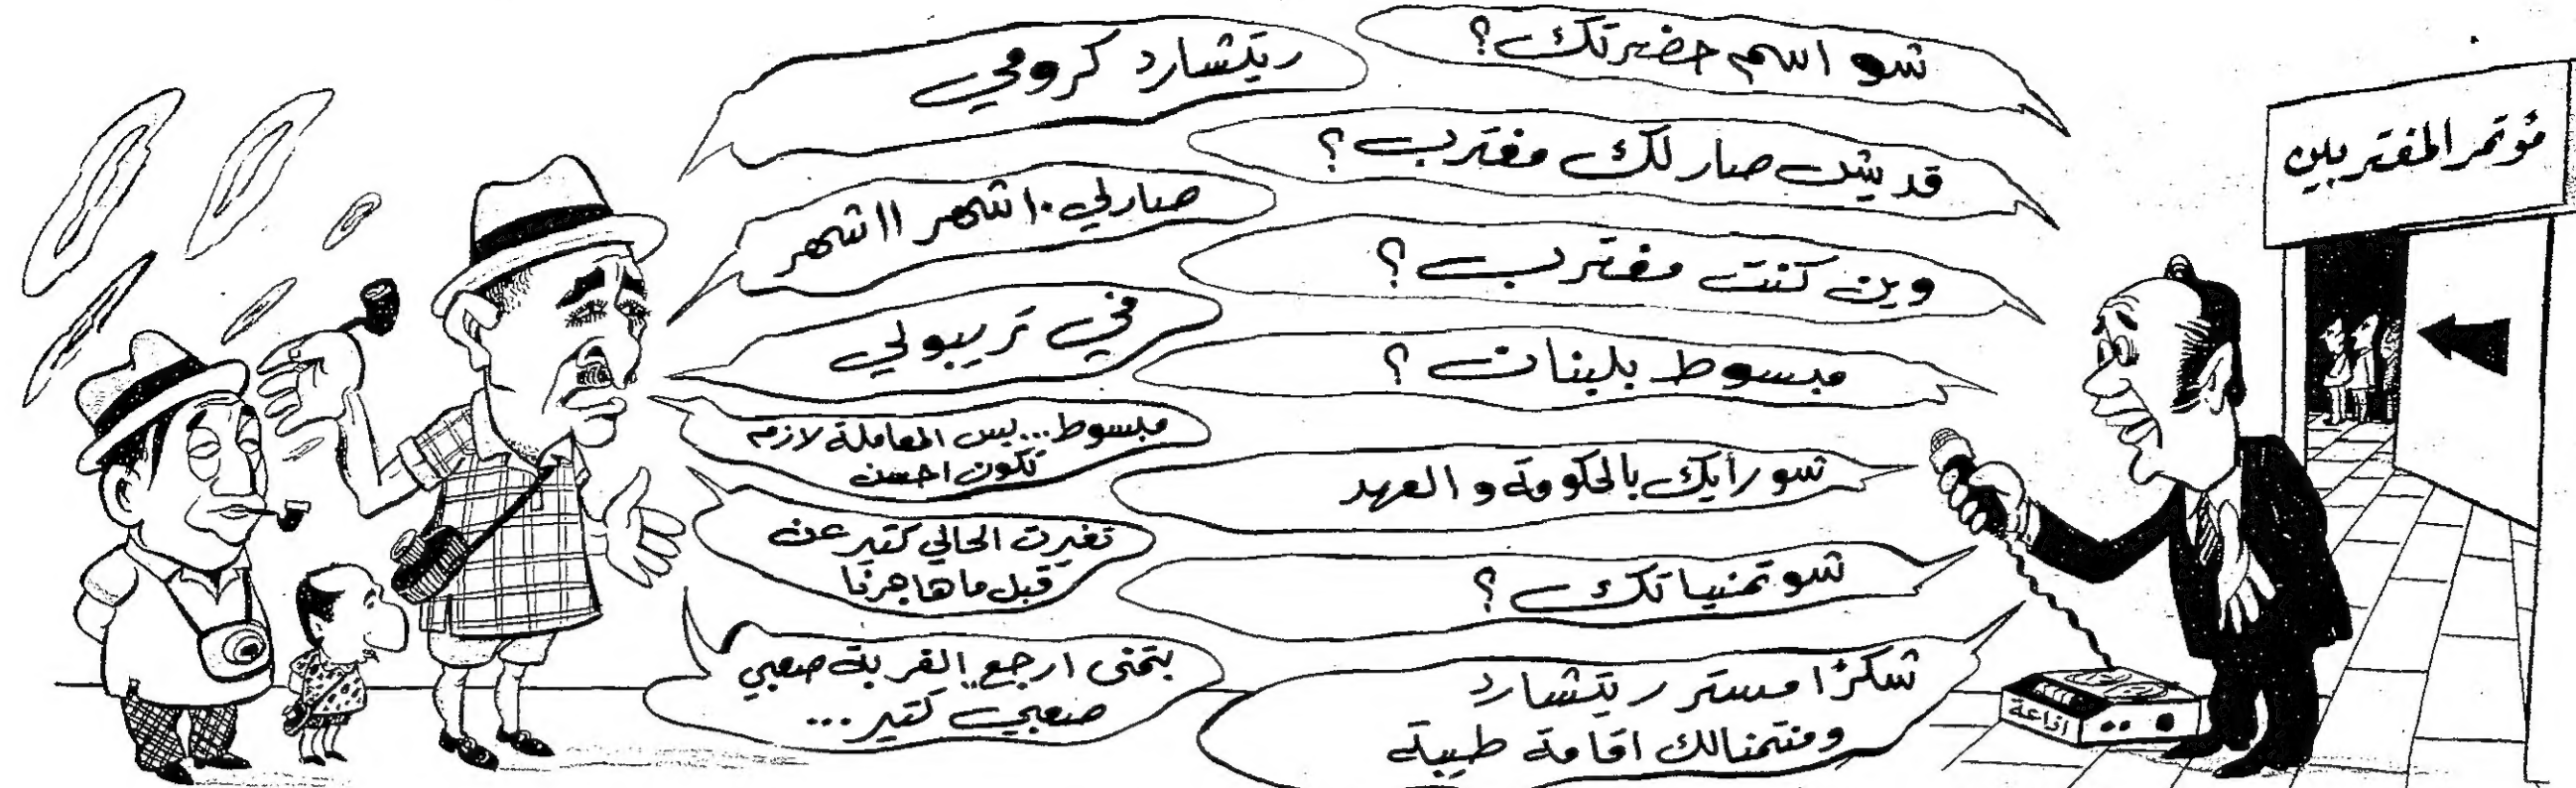 مؤتمر المغتربين
شو اسم حضرتك؟
ريتشارد كرومي
قديش صار لك مغترب؟
صارلي ١٠ اشهر ١١ شهر
وين كنت مغترب؟
في تريبولي
مبسوط بلبنان؟
مبسوط... بس المعاملة لازم
تكون احسن
شو رأيك بالحكومة والعهد
تغيرت الحالي كتير عن
قبل ما هاجرنا
شو تمنياتك؟
بتمنى ارجع الغربة صعبي
صعبي كتير...
شكرًا مستر ريتشارد
ومنتمنالك اقامة طيبة
اذاعة